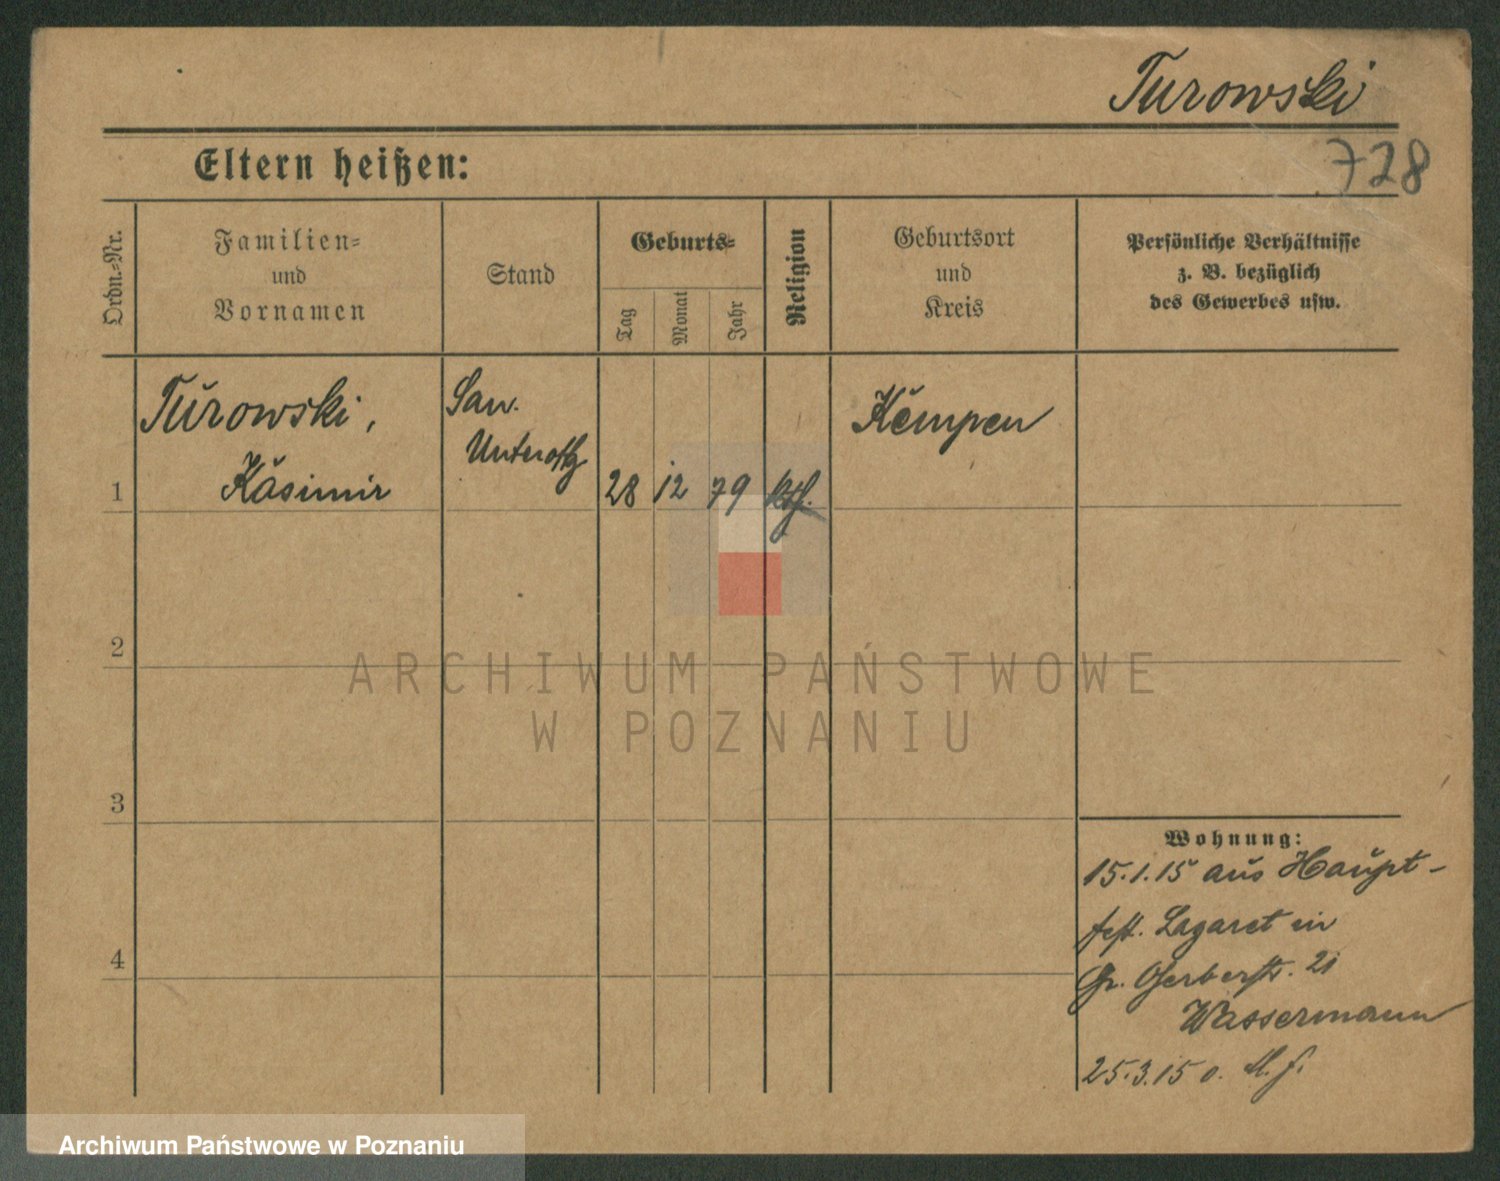 Turowski
728
Eltern heißen:
Ordn.-Nr.
Familien-
und
Vornamen
Stand
Geburts-
Tag
Monat
Jahr
Religion
Geburtsort
und
Kreis
Persönliche Verhältnisse
z. B. bezüglich
des Gewerbes usw.
Turowski,
San.
Kempen
Unteroffz
1 Kasimir 28 12 79 kth.
2
3
4
Wohnung:
15.1.15 aus Haupt-
fest. Lazaret in
Gr. Gerberstr. 21
Wassermann
25.3.15 o.
ARCHIWUM PAŃSTWOWE
W POZNANIU
Archiwum Państwowe w Poznaniu